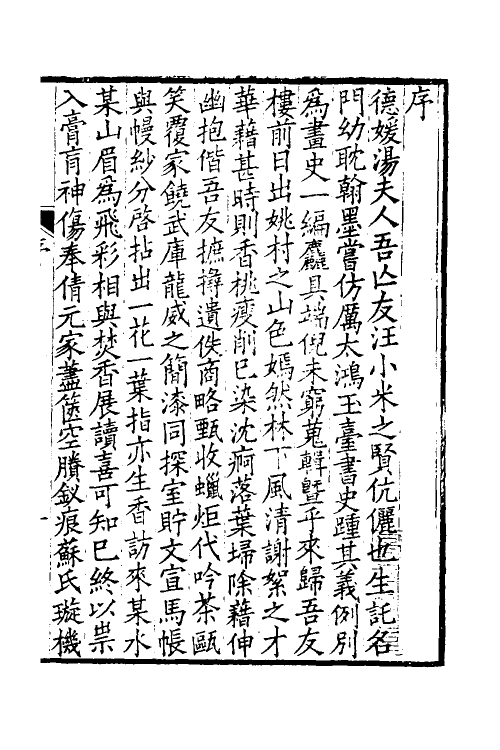 序
德媛湯夫人吾亡友汪小米之賢伉儷也生託名
門幼耽翰墨嘗仿厲太鴻玉臺書史踵其義例別
為畫史一編麤具端倪未窮蒐輯曁乎來歸吾友
樓前日出姚村之山色嫣然林下風清謝絮之才
華藉甚時則香桃瘦削已染沈痾落葉埽除藉伸
幽抱偕吾友摭撏遺佚商略甄收蠟炬代吟茶甌
笑覆家饒武庫龍威之簡漆同探室貯文宣馬帳
與幔紗分啓拈出一花一葉指亦生香訪來某水
某山眉為飛彩相與焚香展讀喜可知已終以祟
入膏肓神傷奉倩元家藎篋空賸釵痕蘇氏璇機